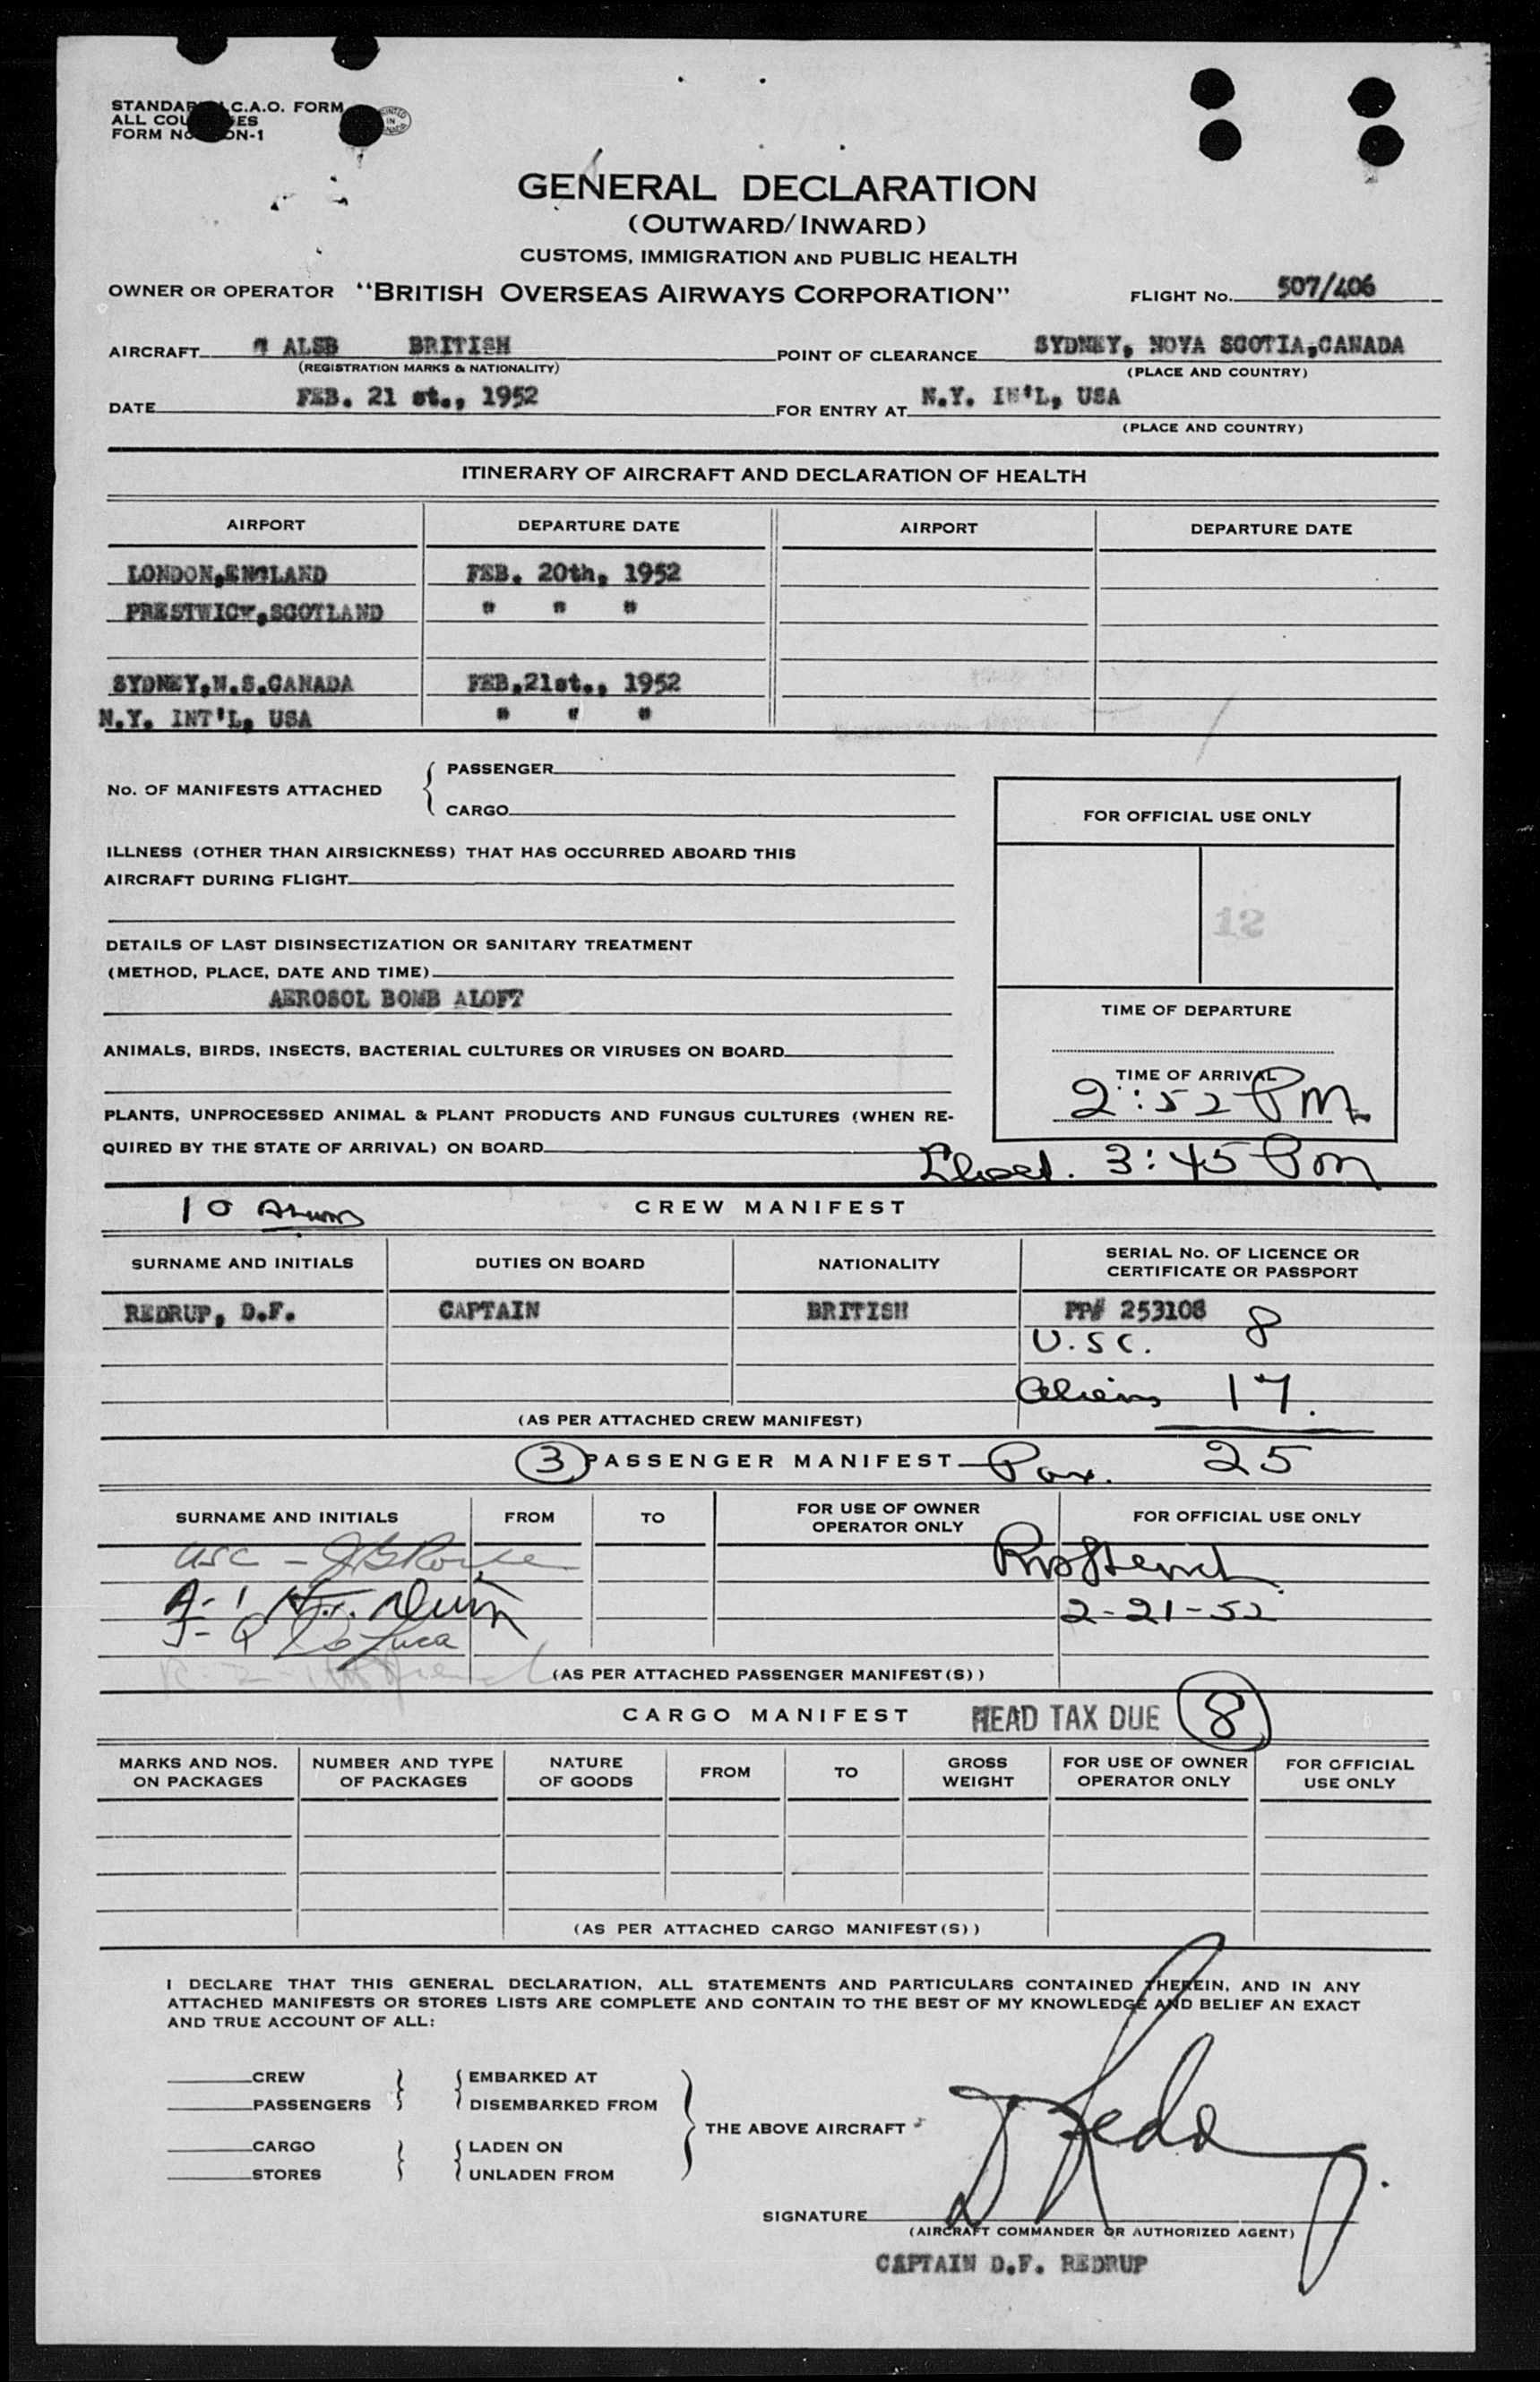 C.A.O. FORM
PRINTED IN CANADA
GENERAL DECLARATION
(OUTWARD/INWARD)
CUSTOMS, IMMIGRATION AND PUBLIC HEALTH
OWNER OR OPERATOR "BRITISH OVERSEAS AIRWAYS CORPORATION" FLIGHT No. 507/406
AIRCRAFT ALSB BRITISH POINT OF CLEARANCE SYDNEY, NOVA SCOTIA,CANADA
(REGISTRATION MARKS & NATIONALITY) (PLACE AND COUNTRY)
DATE FEB. 21 st., 1952 FOR ENTRY AT N.Y. IN'L, USA
(PLACE AND COUNTRY)
ITINERARY OF AIRCRAFT AND DECLARATION OF HEALTH
AIRPORT DEPARTURE DATE AIRPORT DEPARTURE DATE
LONDON,ENGLAND FEB. 20th, 1952
PRESTWICK,SCOTLAND " " "
SYDNEY,N.S.CANADA FEB,21st., 1952
N.Y. INT'L, USA " " "
No. OF MANIFESTS ATTACHED { PASSENGER
CARGO
FOR OFFICIAL USE ONLY
ILLNESS (OTHER THAN AIRSICKNESS) THAT HAS OCCURRED ABOARD THIS
AIRCRAFT DURING FLIGHT
12
DETAILS OF LAST DISINSECTIZATION OR SANITARY TREATMENT
(METHOD, PLACE, DATE AND TIME)
AEROSOL BOMB ALOFT
TIME OF DEPARTURE
ANIMALS, BIRDS, INSECTS, BACTERIAL CULTURES OR VIRUSES ON BOARD
TIME OF ARRIVAL
2:52 PM
PLANTS, UNPROCESSED ANIMAL & PLANT PRODUCTS AND FUNGUS CULTURES (WHEN RE-
QUIRED BY THE STATE OF ARRIVAL) ON BOARD
3:45 Pm
10 CREW MANIFEST
SURNAME AND INITIALS DUTIES ON BOARD NATIONALITY SERIAL No. OF LICENCE OR
CERTIFICATE OR PASSPORT
REDRUP, D.F. CAPTAIN BRITISH PP# 253108
U.SC. 8
Aliens 17
(AS PER ATTACHED CREW MANIFEST)
3 PASSENGER MANIFEST Pax. 25
SURNAME AND INITIALS FROM TO FOR USE OF OWNER
OPERATOR ONLY FOR OFFICIAL USE ONLY
USC -
A-1
2-21-52
De Luca
(AS PER ATTACHED PASSENGER MANIFEST(S))
CARGO MANIFEST HEAD TAX DUE 8
MARKS AND NOS.
ON PACKAGES NUMBER AND TYPE
OF PACKAGES NATURE
OF GOODS FROM TO GROSS
WEIGHT FOR USE OF OWNER
OPERATOR ONLY FOR OFFICIAL
USE ONLY
(AS PER ATTACHED CARGO MANIFEST(S))
I DECLARE THAT THIS GENERAL DECLARATION, ALL STATEMENTS AND PARTICULARS CONTAINED THEREIN, AND IN ANY
ATTACHED MANIFESTS OR STORES LISTS ARE COMPLETE AND CONTAIN TO THE BEST OF MY KNOWLEDGE AND BELIEF AN EXACT
AND TRUE ACCOUNT OF ALL:
CREW } { EMBARKED AT
PASSENGERS } { DISEMBARKED FROM
THE ABOVE AIRCRAFT
CARGO } { LADEN ON
STORES } { UNLADEN FROM
SIGNATURE
(AIRCRAFT COMMANDER OR AUTHORIZED AGENT)
CAPTAIN D.F. REDRUP